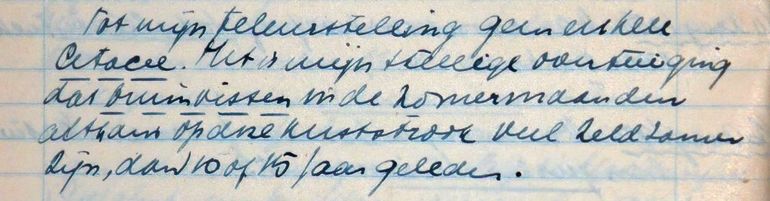 Tot mijn teleurstelling geen enkele
Cetacee. Het is mijn stellige overtuiging
dat bruinvissen in de zomermaanden
althans op deze kuststrook veel zeldzamer
zijn, dan 10 of 15 jaar geleden.